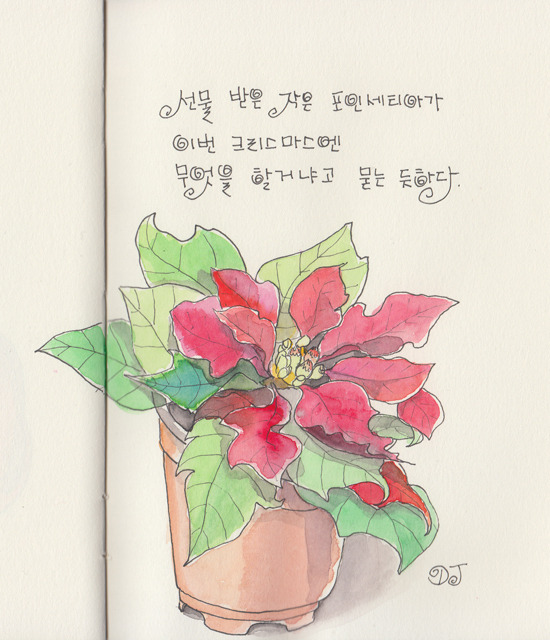 선물 받은 작은 포인세티아가
이번 크리스마스엔
무엇을 할거냐고 묻는 듯하다.
DJ